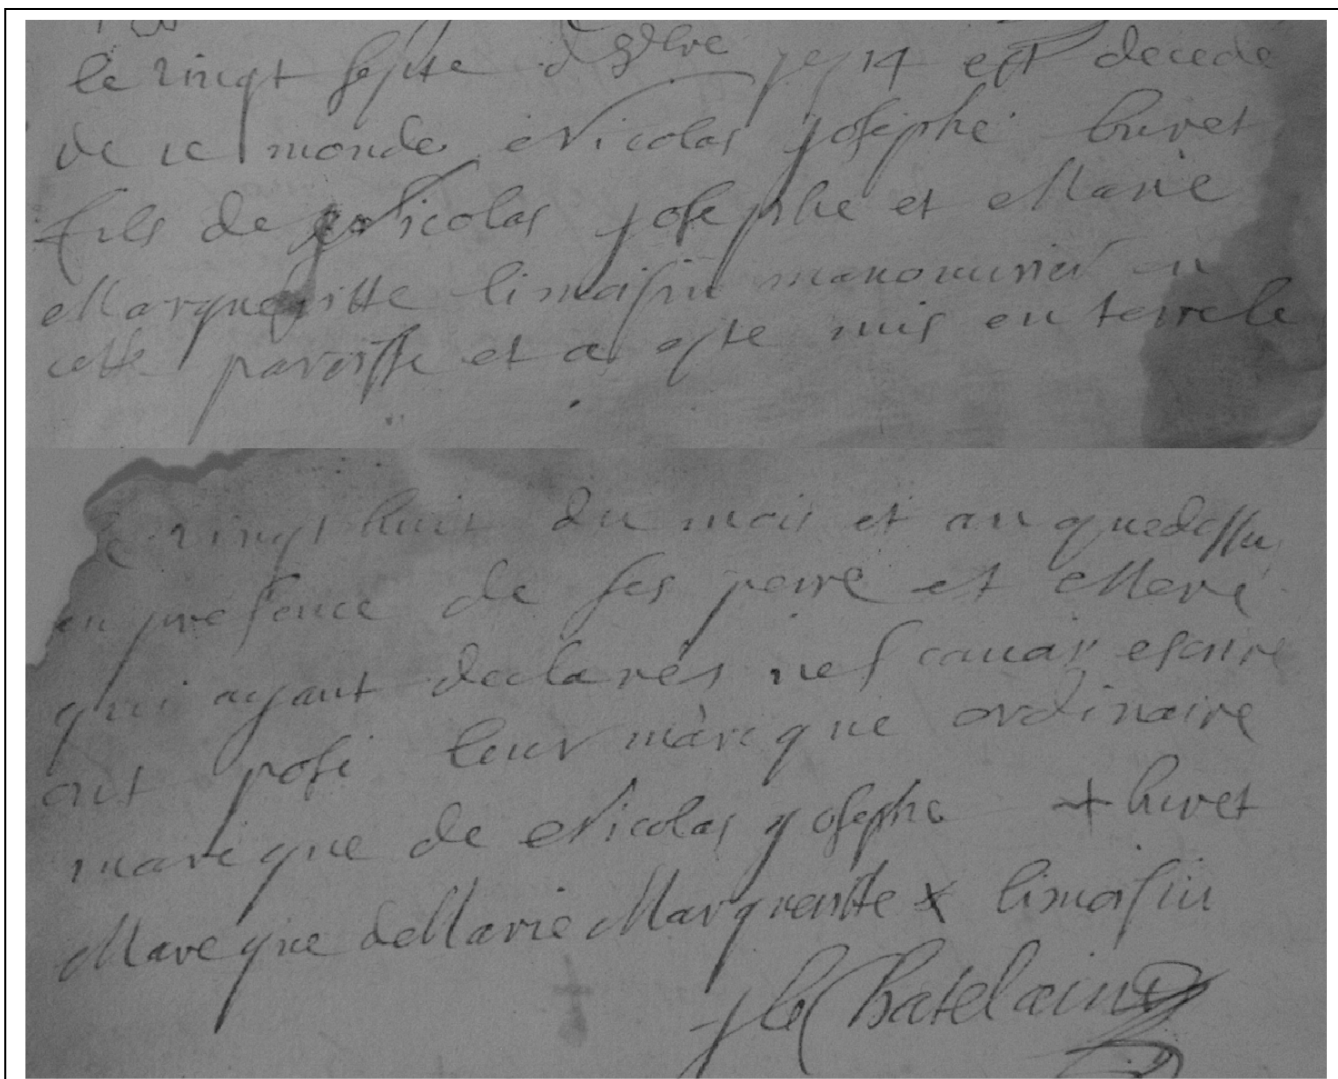 le vingt septe d 8bre 1714 est decede
de ce monde Nicolas josephe huvet
fils de Nicolas josephe et Marie
Margueritte limosin manouvrier en
cette paroisse et a este mis en terre le
vingt huit du mois et an que dessu
en presence de ses peire et Mere
qui ayant declarés ne scavair escrire
ont posé leur marcque ordinaire
marcque de Nicolas yosephe + huvet
Marcque de Marie Margueritte x limosin
j le Chatelain